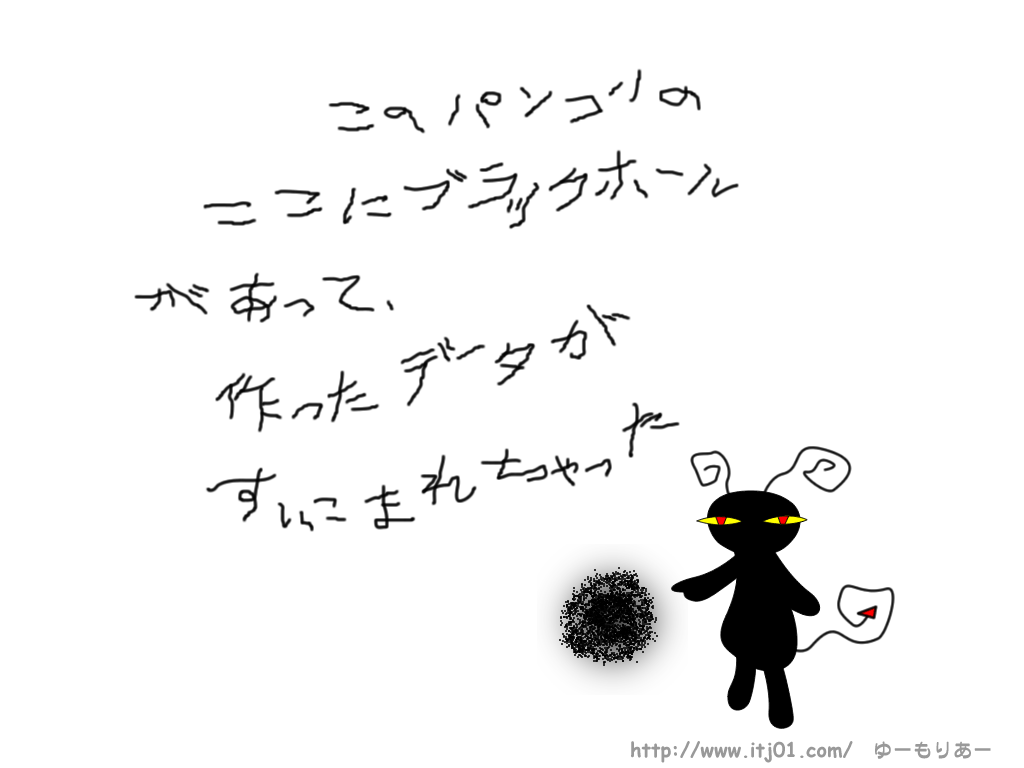 このパソコンの
ここにブラックホール
があって、
作ったデータが
すいこまれちゃった
http://www.itj01.com/ ゆーもりあー